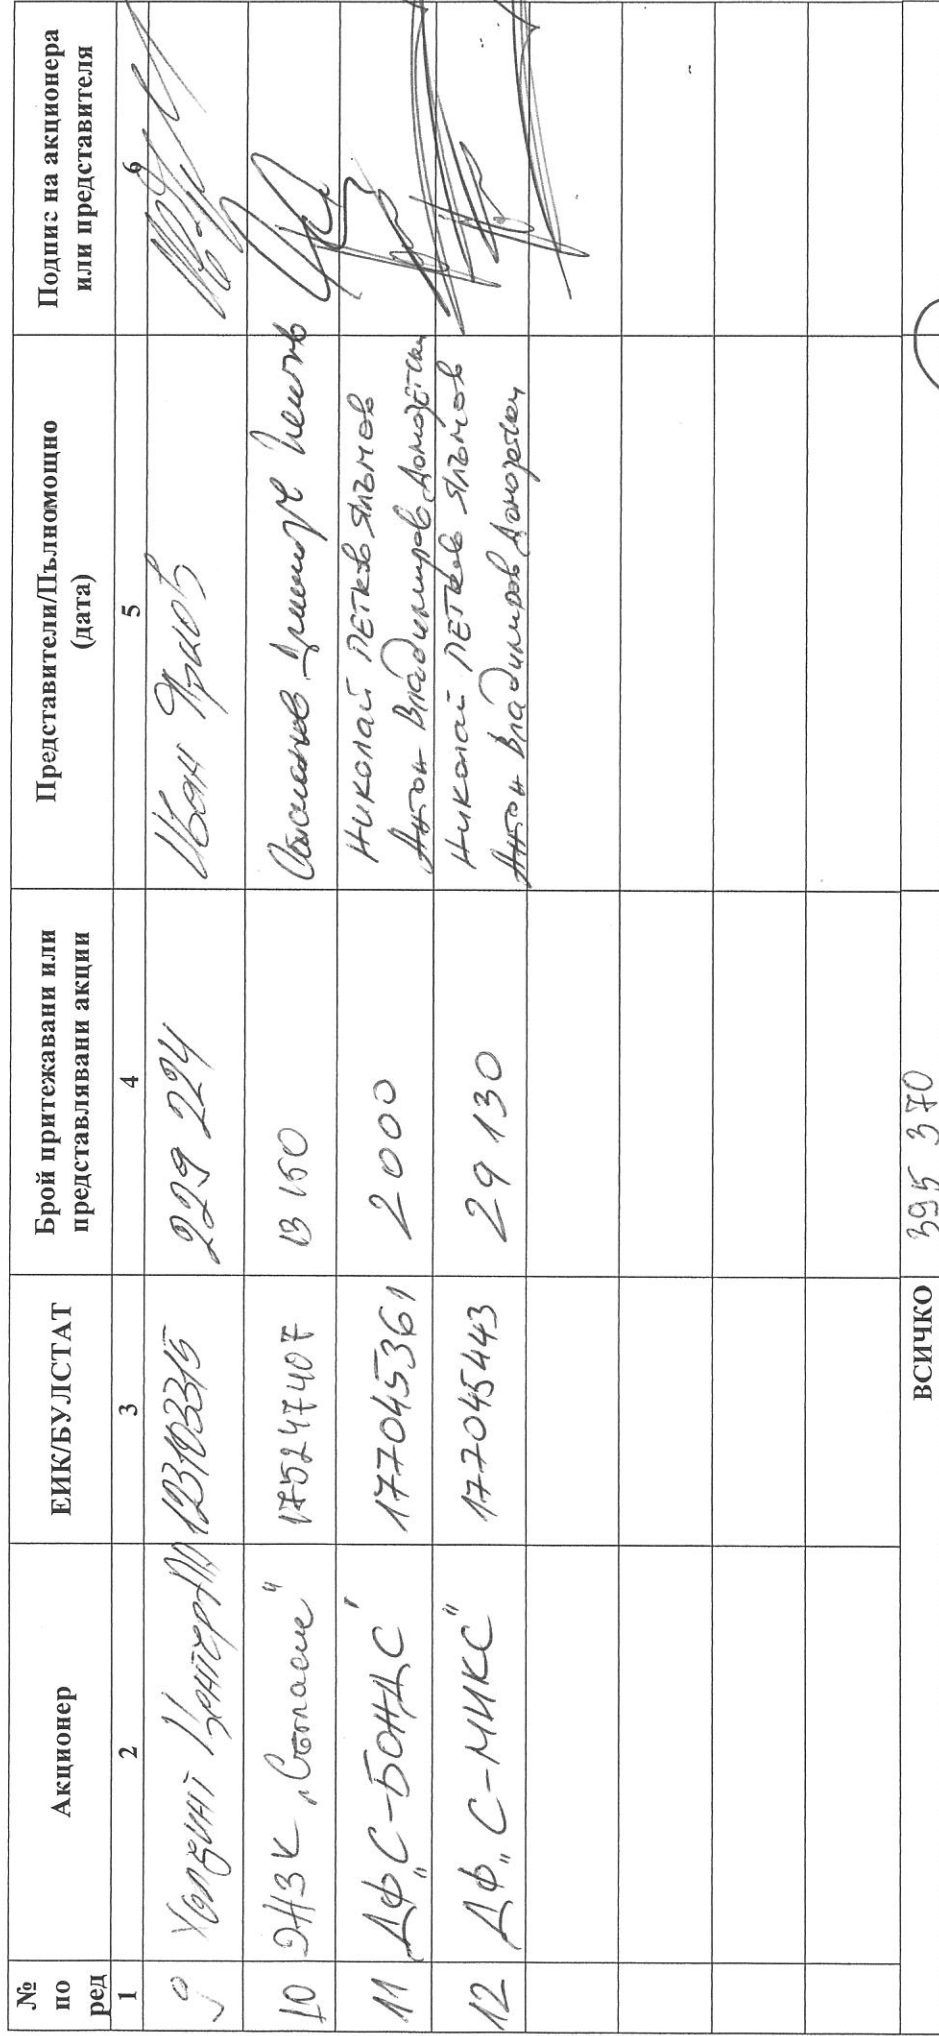 № по ред
Акционер
ЕИК/БУЛСТАТ
Брой притежавани или представлявани акции
Представители/Пълномощно (дата)
Подпис на акционера или представителя
1 2 3 4 5 6
9 Холдинг 123103315 229 224 Иван
10 ЗНЗК „Съгласие“ 175247407 13 150
11 ДФ „С-БОНДС" 177045361 2000 Николай Петков Ялъмов
Антон Владимиров Домозетски
12 ДФ „С-МИКС" 177045443 29 130 Николай Петков Ялъмов
Антон Владимиров Домозетски
ВСИЧКО 395 370